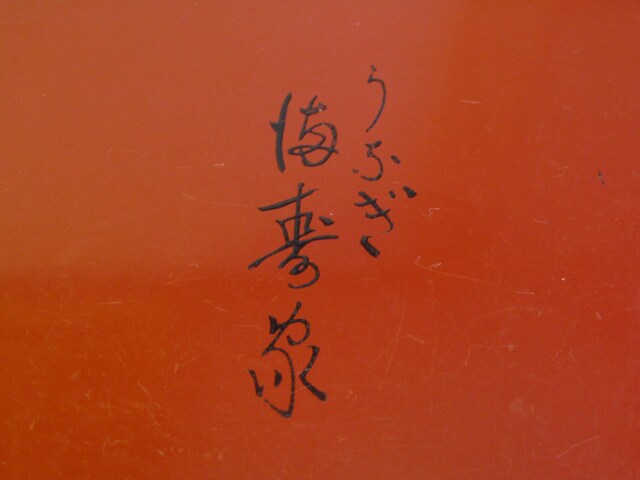 うなぎ
満寿家